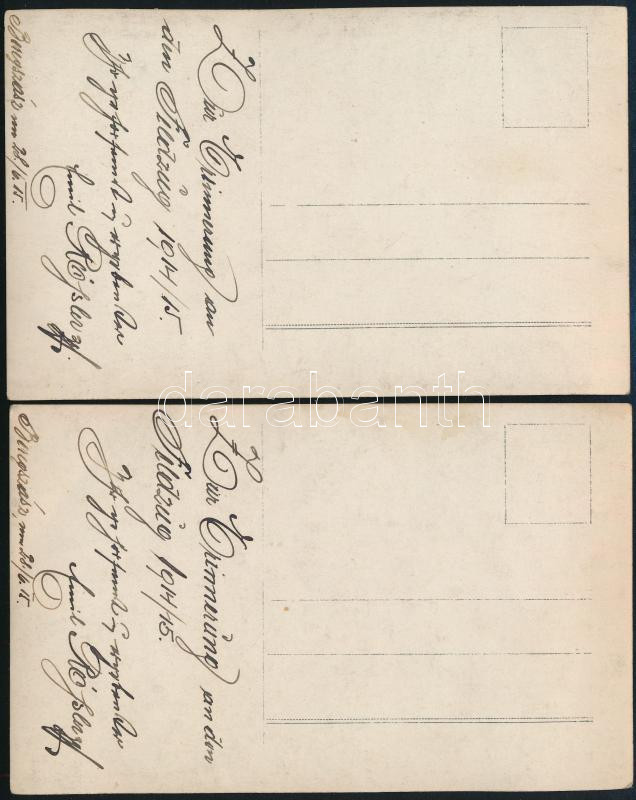 Zur Erinnerung an
den Feldzug 1914/15.
Ihr
ergebenster
Emil
Beregszász, am 28/6. 15.
darabanth
Zur Erinnerung an den
Feldzug 1914/15.
Ihr
ergebenster
Emil
Beregszász, am 28/6. 15.